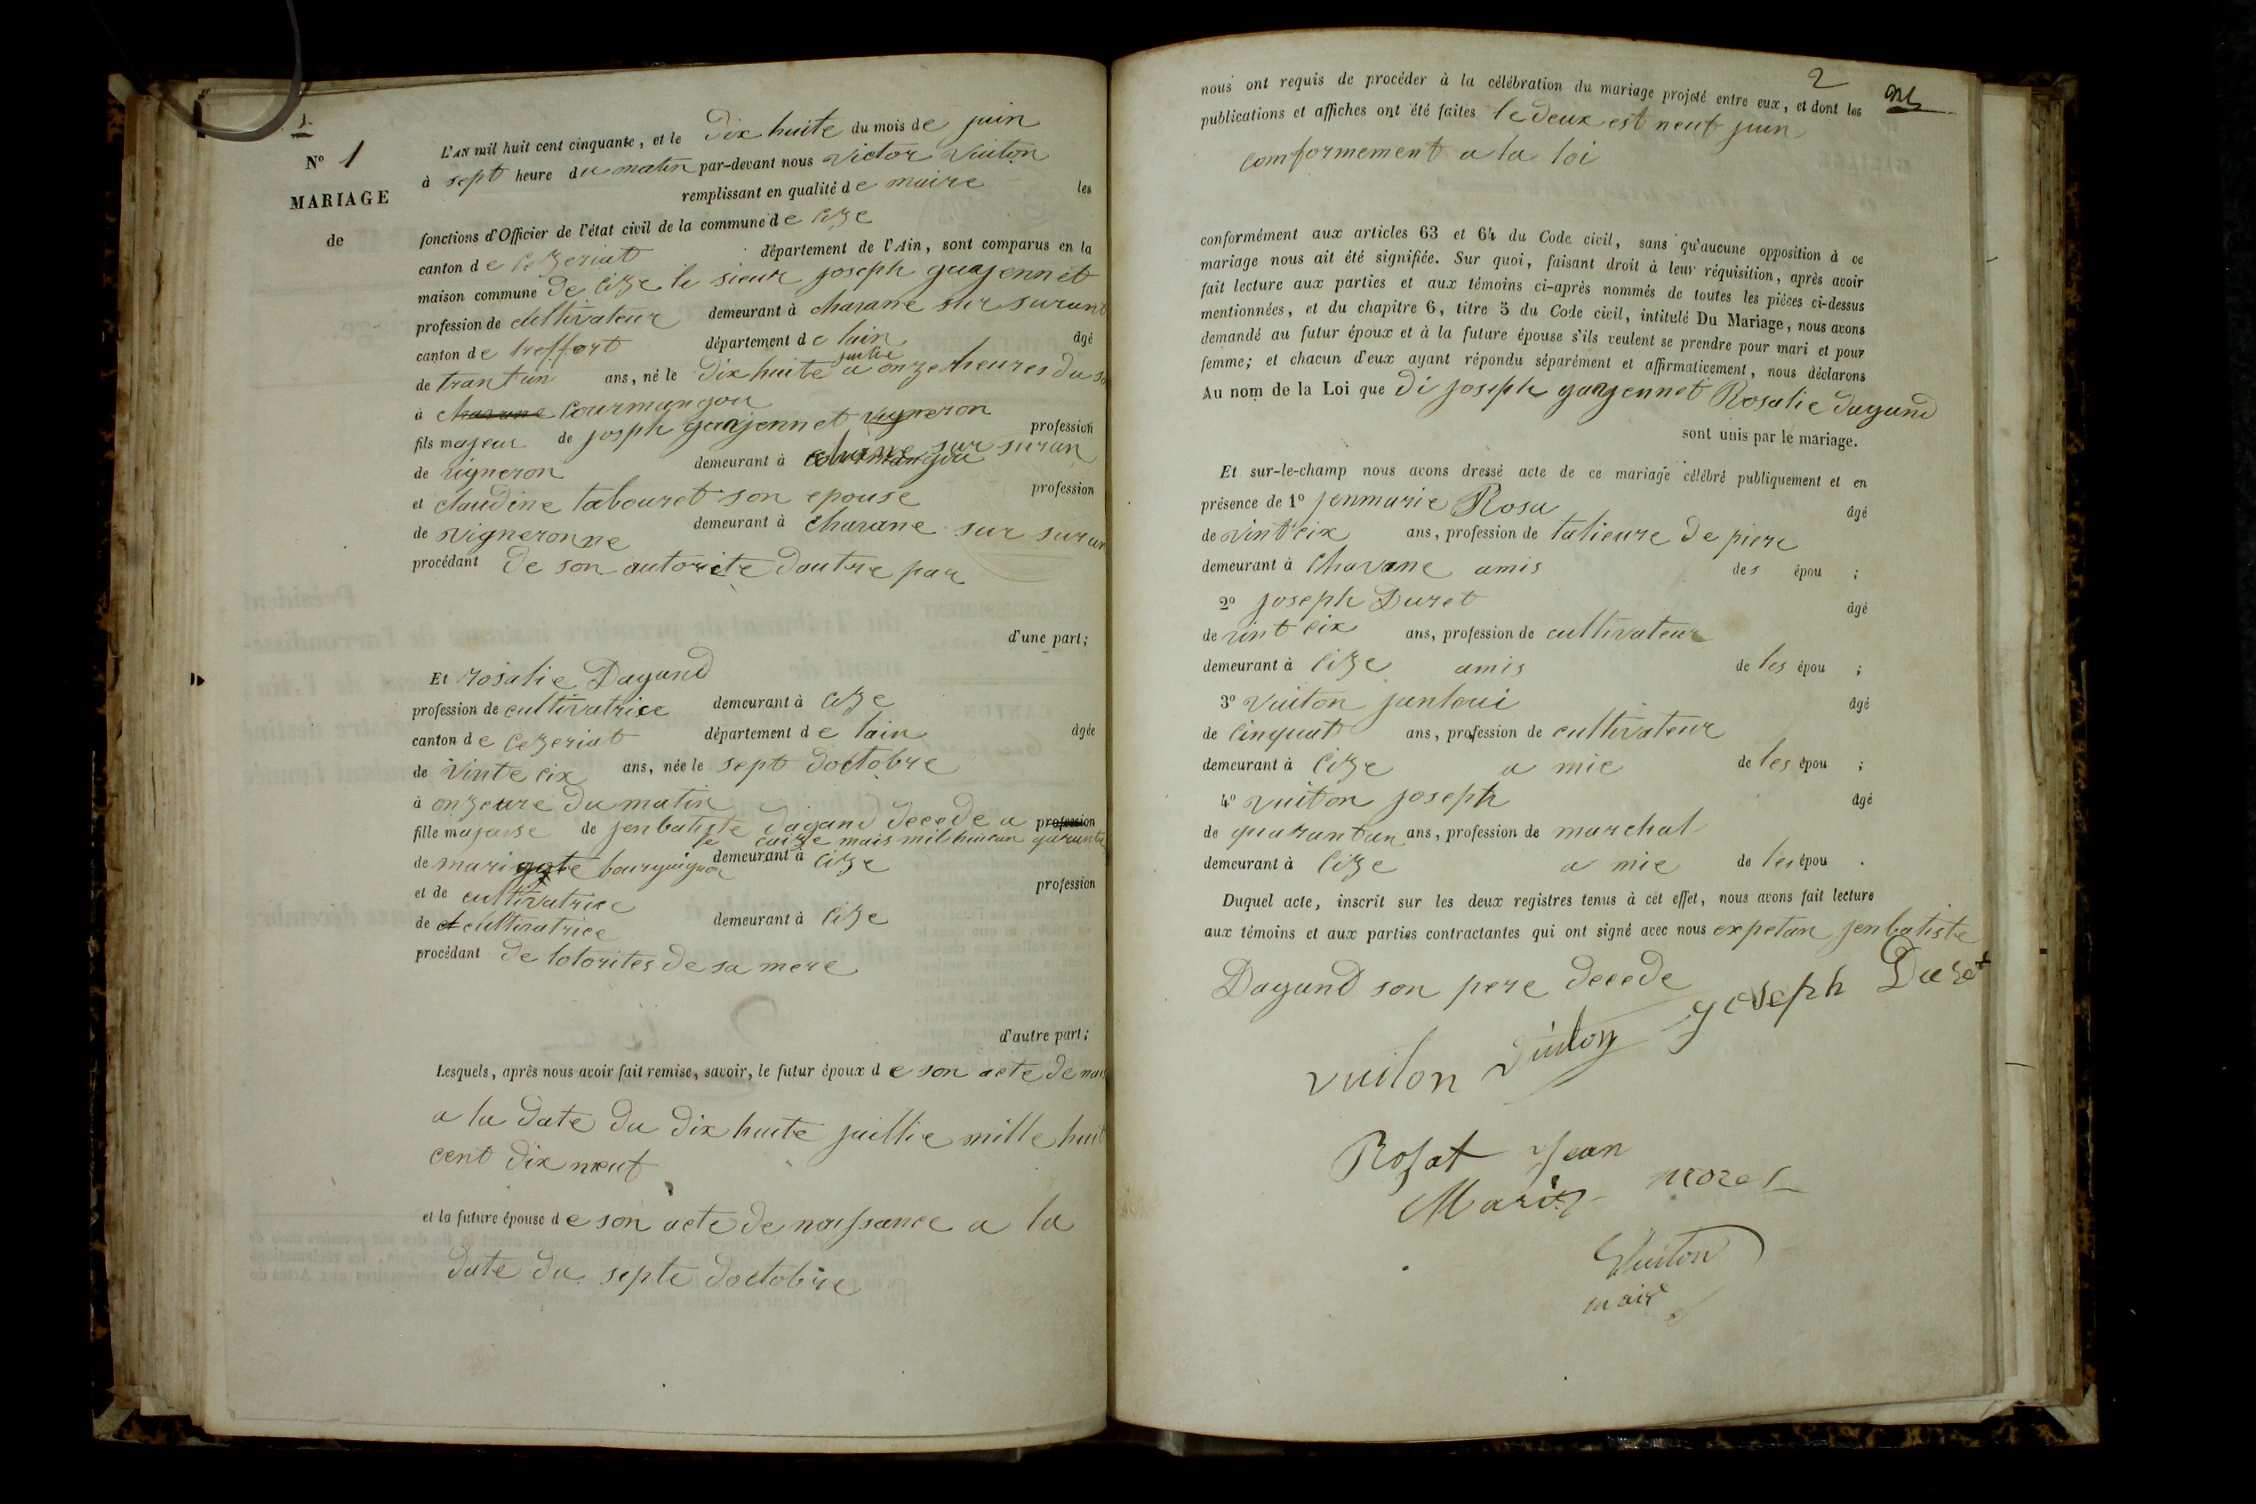 1
N° 1
MARIAGE
de
L'AN mil huit cent cinquante, et le dix huite du mois de juin
à sept heure du matin par-devant nous victor vuiton
remplissant en qualité de maire les
fonctions d'Officier de l'état civil de la commune de cize
canton de cezeriat département de l'Ain, sont comparus en la
maison commune de cize le sieur joseph guajennet
profession de cultivateur demeurant à chavane sur surant
canton de treffort département de lain âgé
de trant un ans, né le dix huite juilie a onze heures du so
à chavane courmangou
fils majeur de josph guajennet vigneron profession
de vigneron demeurant à courmangou chavane sur suran
et claudine tabouret son epouse profession
de vigneronne demeurant à chavane sur suran
procédant de son autorite dautre par
d'une part;
Et rosalie Dagand
profession de cultivatrice demeurant à cize
canton de cezeriat département de lain âgée
de vinte cix ans, née le sept doctobre
à onzeure du matin
fille majause de jenbatiste dagand decede a profession
le caize mais mil huican quarante
de bourguignon demeurant à cize
et de cultivatrice profession
de et cultivatrice demeurant à cize
procédant de lotorites de sa mere
d'autre part;
Lesquels, après nous avoir fait remise, savoir, le futur époux de son acte de nais
a la date du dix huite juillie mille huit
cent dix neuf
et la future épouse de son acte de naissance a la
date du septe doctobre
2
nous ont requis de procéder à la célébration du mariage projeté entre eux, et dont les
publications et affiches ont été faites le deux est neuf juin
comformement a la loi
conformément aux articles 63 et 64 du Code civil, sans qu'aucune opposition à ce
mariage nous ait été signifiée. Sur quoi, faisant droit à leur réquisition, après avoir
fait lecture aux parties et aux témoins ci-après nommés de toutes les pièces ci-dessus
mentionnées, et du chapitre 6, titre 5 du Code civil, intitulé Du Mariage, nous avons
demandé au futur époux et à la future épouse s'ils veulent se prendre pour mari et pour
femme; et chacun d'eux ayant répondu séparément et affirmativement, nous déclarons
Au nom de la Loi que di joseph guajennet Rosalie dagand
sont unis par le mariage.
Et sur-le-champ nous avons dressé acte de ce mariage célébré publiquement et en
présence de 1° jenmarie Rosa âgé
de vint cix ans, profession de talieure de piere
demeurant à Chavane amis des épou ;
2° joseph Duret âgé
de vint cix ans, profession de cultivateur
demeurant à cize amis de les épou ;
3° vuiton janloui âgé
de cinquat ans, profession de cultivateur
demeurant à cize a mie de les épou ;
4° vuiton joseph âgé
de quarantan ans, profession de marchal
demeurant à cize a mie de les épou .
Duquel acte, inscrit sur les deux registres tenus à cet effet, nous avons fait lecture
aux témoins et aux parties contractantes qui ont signé avec nous expetan jenbatiste
Dagand son pere decede
joseph Duret
vuiton vuiton
Rosat Jean
Marie morel
Vuiton
maire